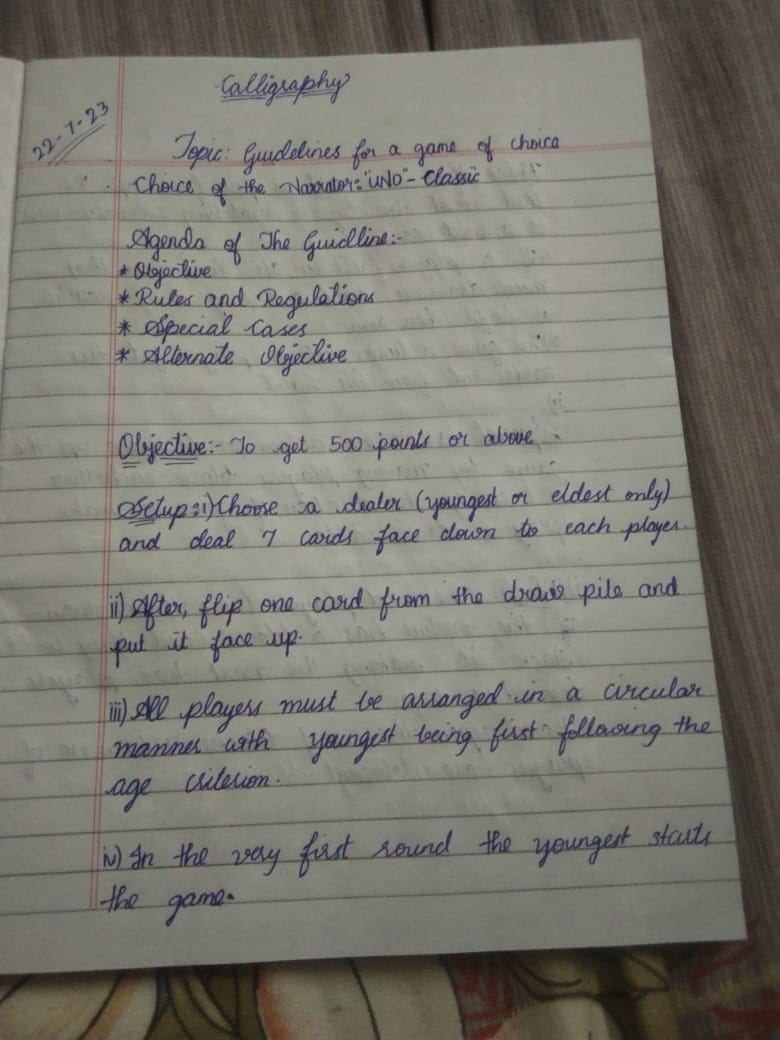 Calligraphy
22-7-23
Topic: Guidelines for a game of choice
Choice of the Narrator: "UNO" - Classic
Agenda of The Guidline:-
* Objective
* Rules and Regulations
* Special Cases
* Alternate Objective
Objective:- To get 500 points or above.
Setup: i) Choose a dealer (youngest or eldest only)
and deal 7 cards face down to each player.
ii) After, flip one card from the draw pile and
put it face up.
iii) All players must be arranged in a circular
manner with youngest being first following the
age criterion.
iv) In the very first round the youngest starts
the game.